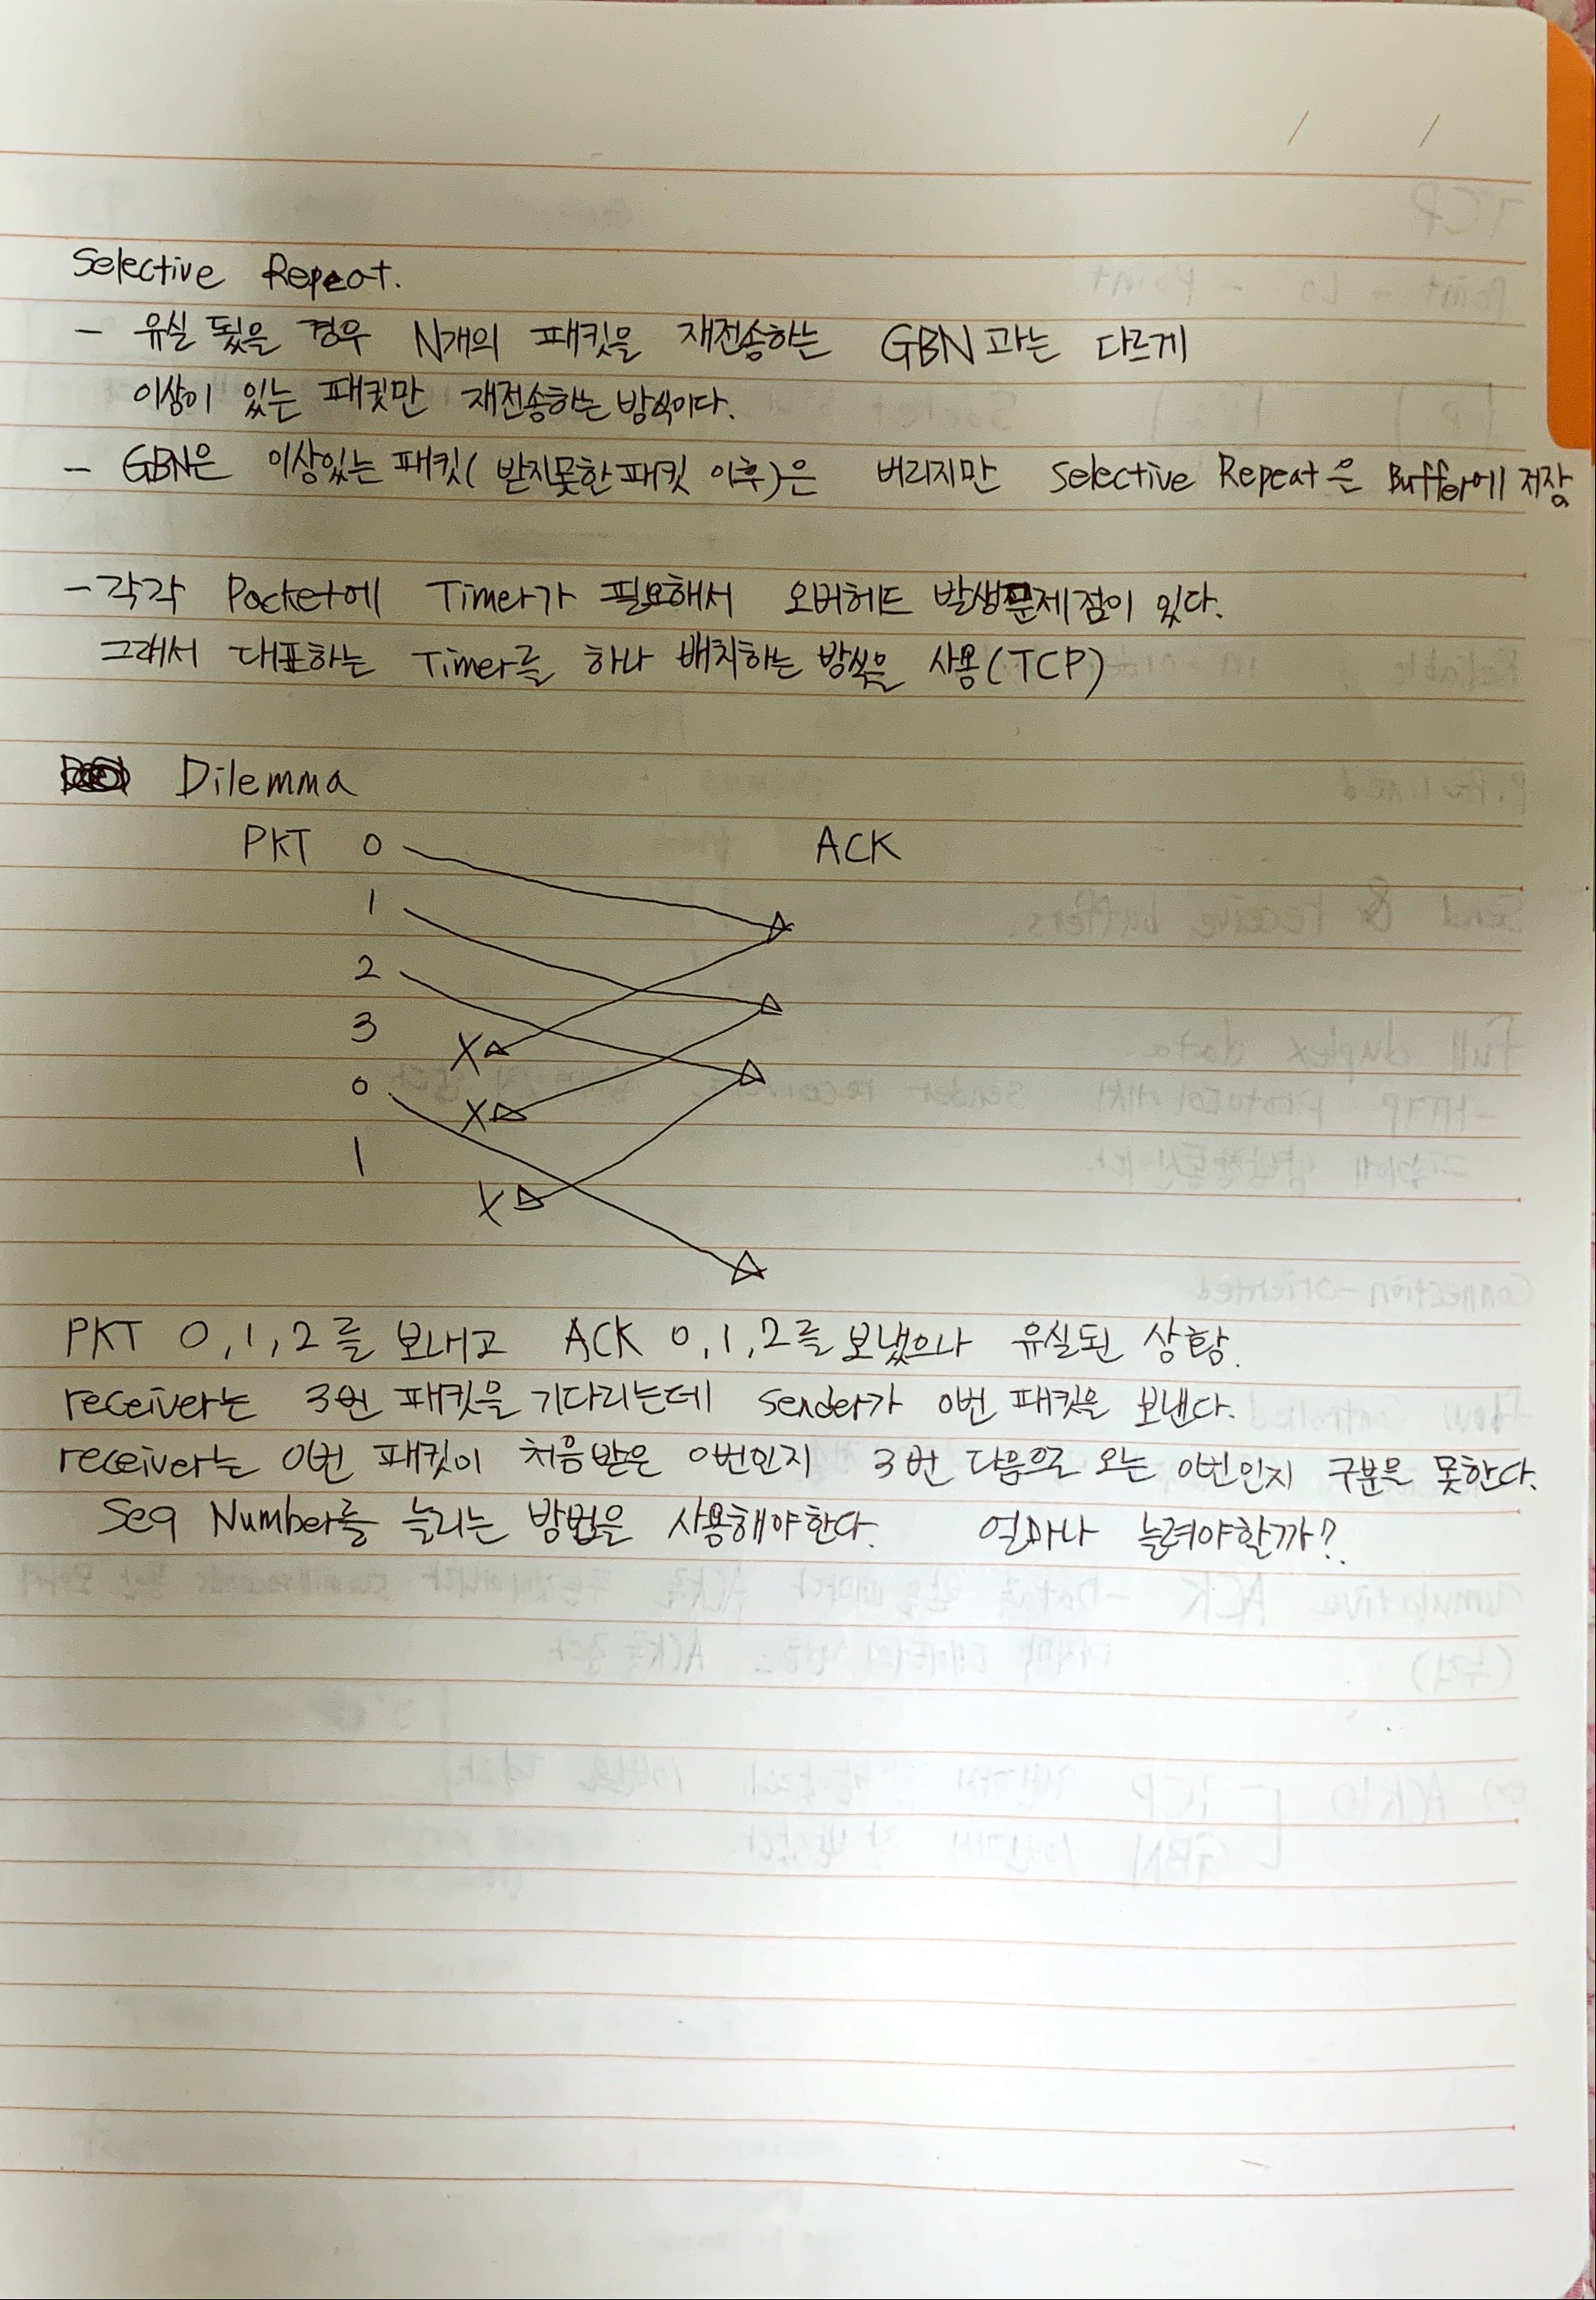 Selective Repeat.
- 유실 됬을 경우 N개의 패킷을 재전송하는 GBN과는 다르게
이상이 있는 패킷만 재전송하는 방식이다.
- GBN은 이상있는 패킷(받지못한패킷 이후)은 버리지만 Selective Repeat은 Buffer에 저장
- 각각 Packet에 Timer가 필요해서 오버헤드 발생문제점이 있다.
그래서 대표하는 Timer를 하나 배치하는 방식을 사용(TCP)
Dilemma
PKT 0 ACK
1
2
3
X
0
X
1
X
PKT 0,1,2를 보내고 ACK 0,1,2를 보냈으나 유실된 상황.
receiver는 3번 패킷을 기다리는데 sender가 0번 패킷을 보낸다.
receiver는 0번 패킷이 처음받은 0번인지 3번 다음으로 오는 0번인지 구분을 못한다.
Seq Number를 늘리는 방법을 사용해야한다. 얼마나 늘려야할까?